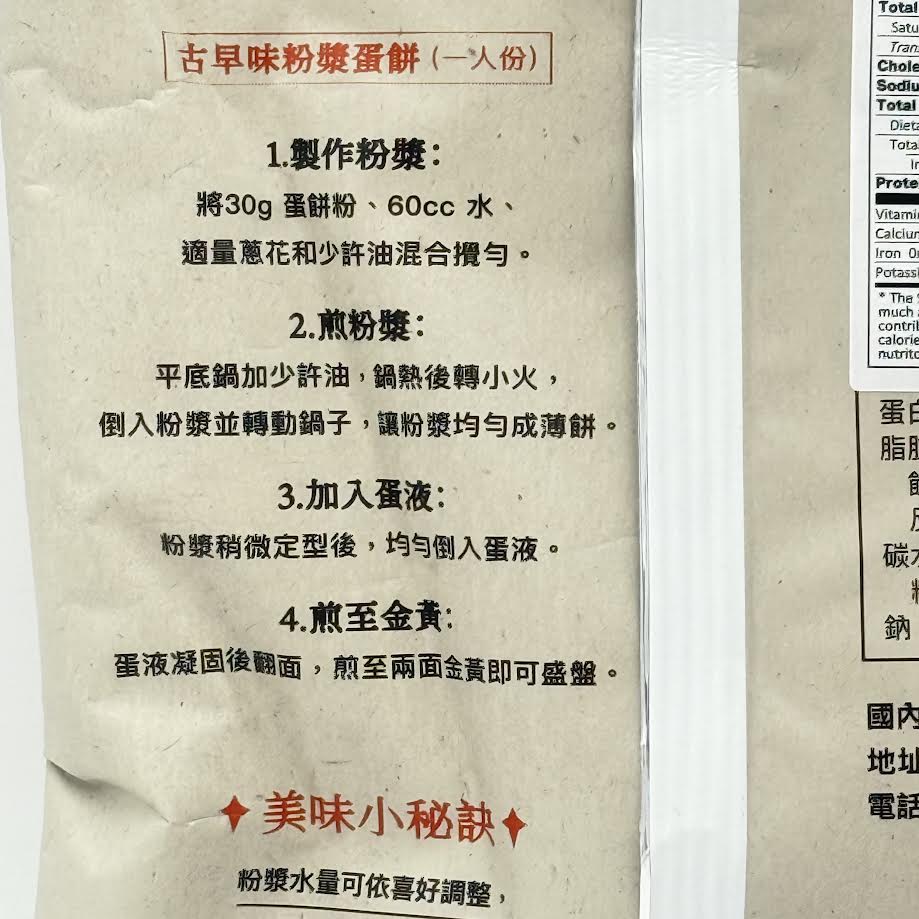 古早味粉漿蛋餅(一人份)
1.製作粉漿:
將30g 蛋餅粉、60cc 水、
適量蔥花和少許油混合攪勻。
2.煎粉漿:
平底鍋加少許油,鍋熱後轉小火,
倒入粉漿並轉動鍋子,讓粉漿均勻成薄餅。
3.加入蛋液:
粉漿稍微定型後,均勻倒入蛋液。
4.煎至金黃:
蛋液凝固後翻面,煎至兩面金黃即可盛盤。
美味小秘訣
粉漿水量可依喜好調整,
Total
Satu
Trans
Chole
Sodiu
Total
Dieta
Tota
In
Prote
Vitami
Calciur
Iron 0
Potassi
* The
much a
contrib
calorie
nutritio
蛋白
脂肪
碳水
鈉
國內
地址
電話